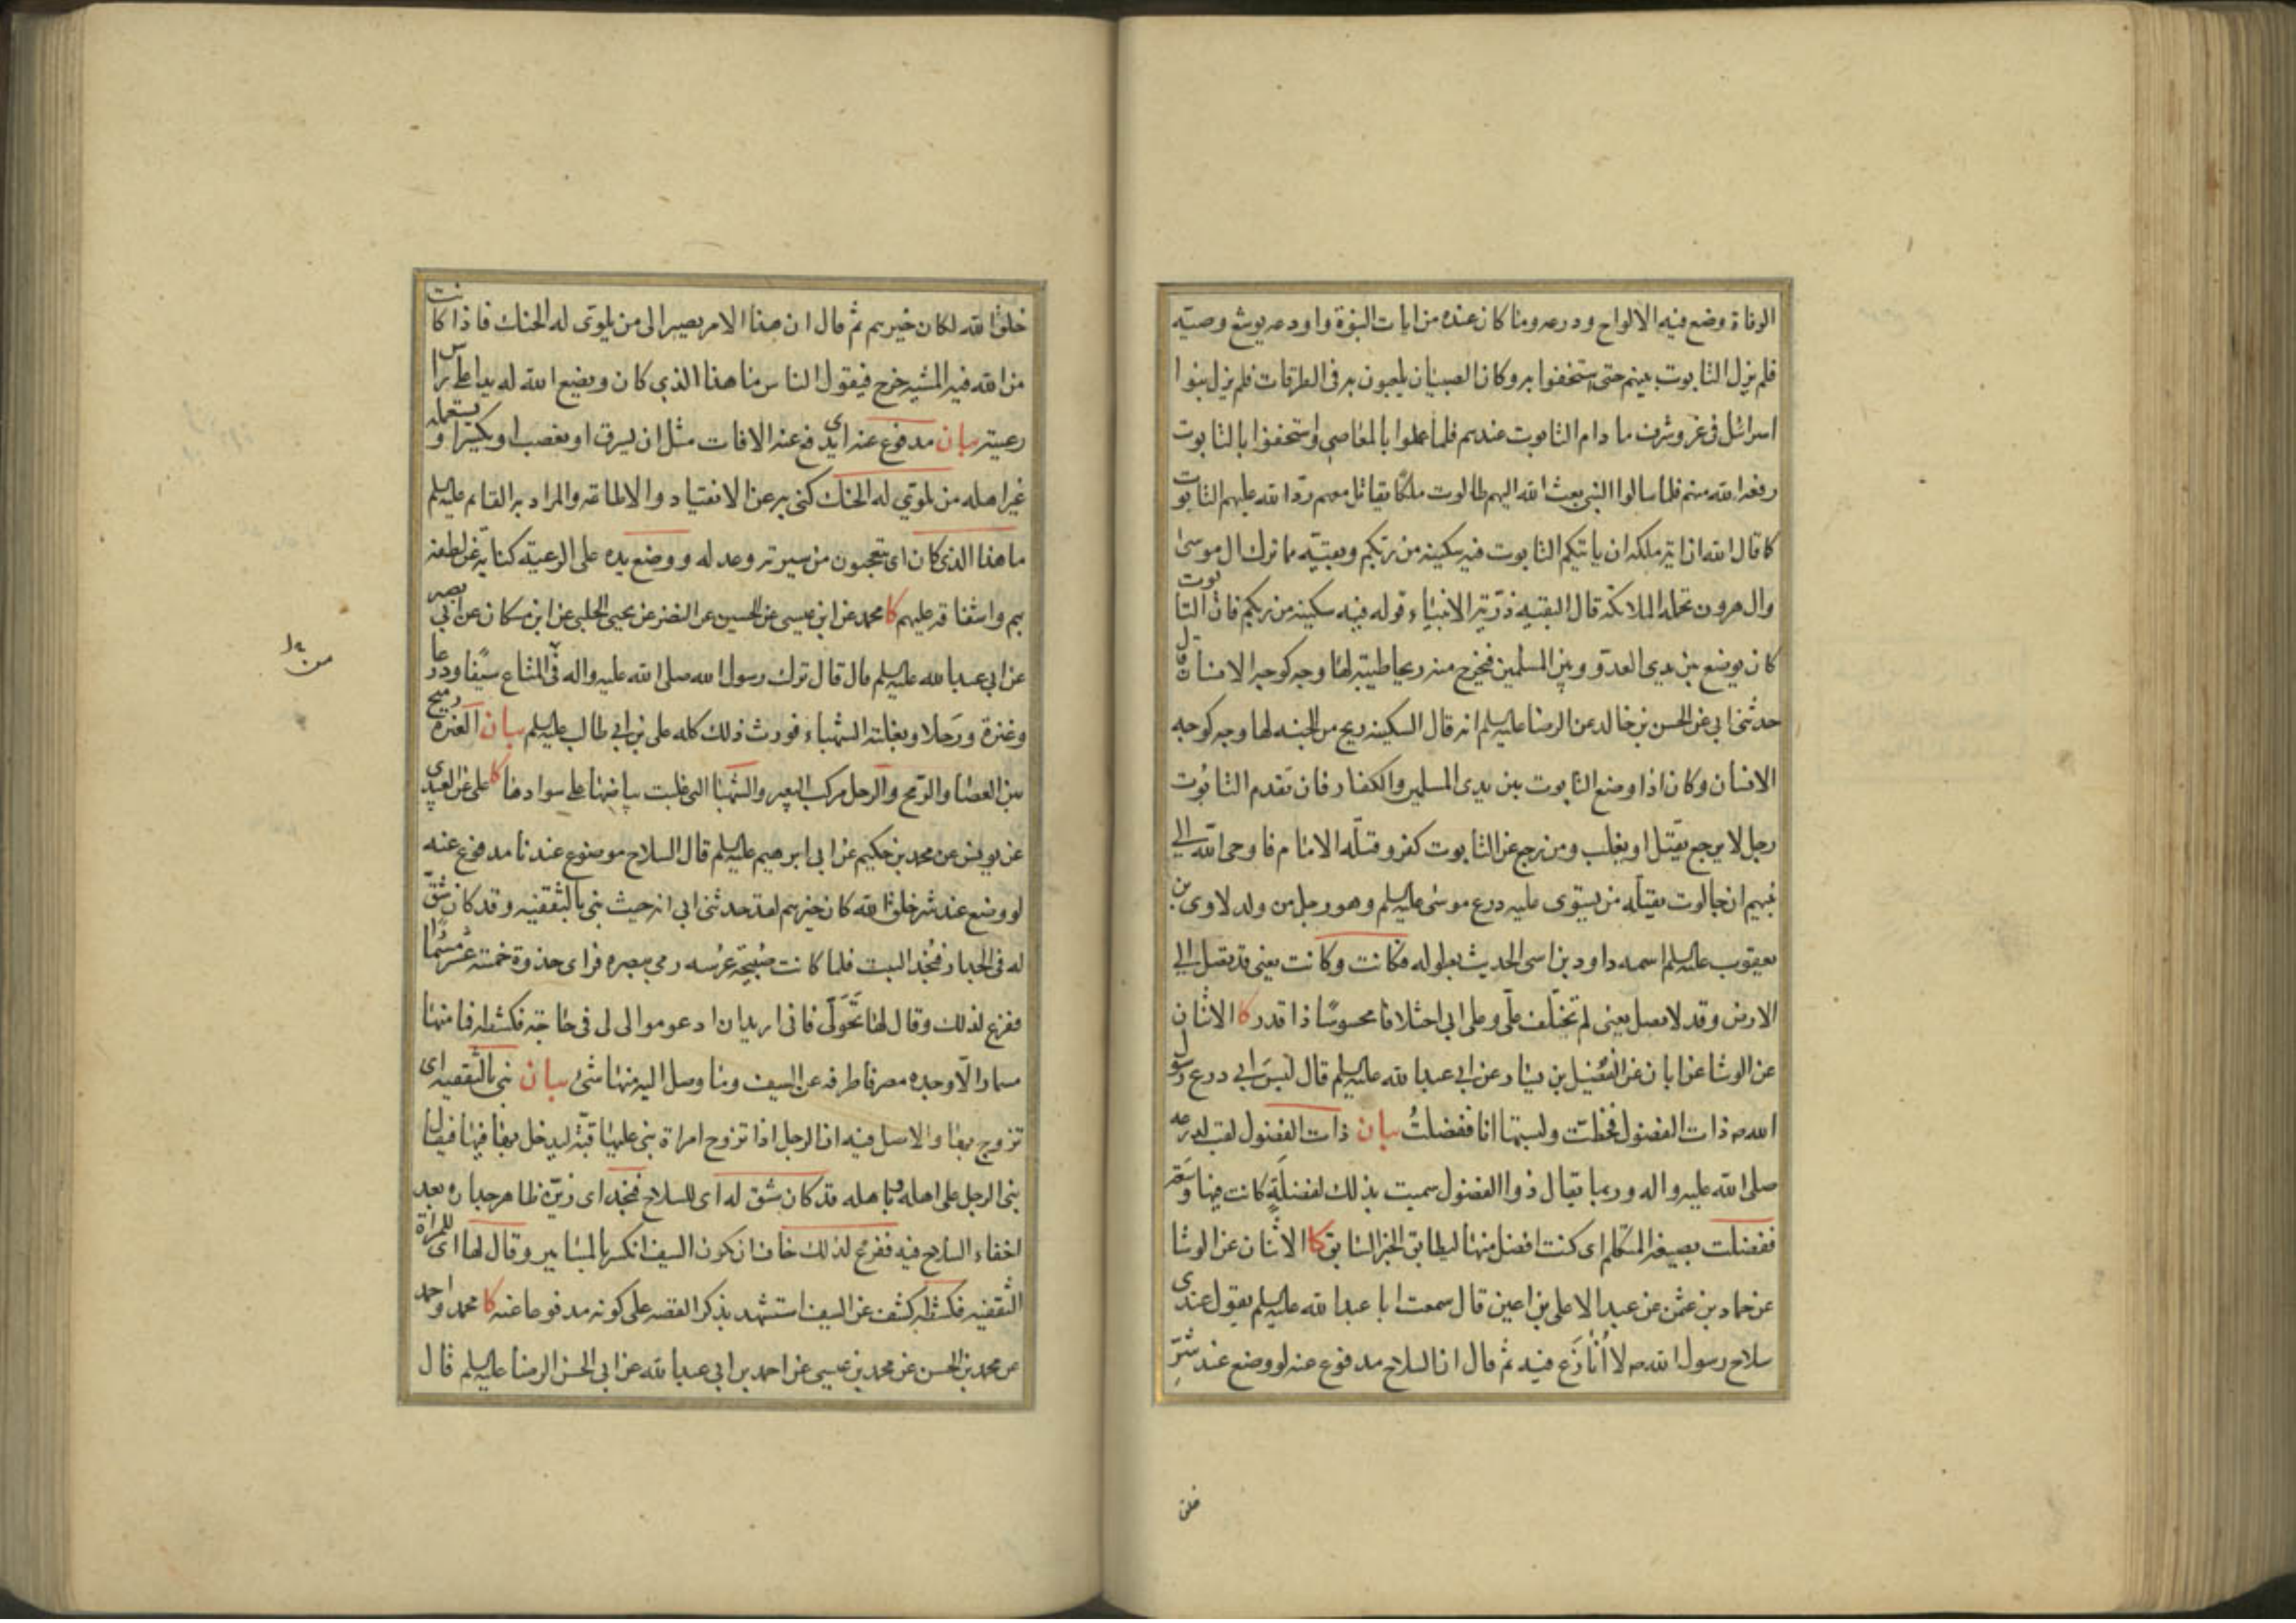 الوفاة وضع فيه الالواح ودرعه وما كان عنده من ايات النبوة واودعه يوشع وصيته
فلم يزل التابوت بينهم حتى استخفوا به وكان الصبيان يلعبون به في الطرقات فلم يزل بنوا
اسرائل في عز وشرف ما دام التابوت عندهم فلما عملوا بالمعاصي واستخفوا بالتابوت
رفعه الله منهم فلما سالوا النبي بعث الله اليهم طالوت ملكا يقاتل معهم ردا لله عليهم التابوت
كما قال الله ان اية ملكه ان ياتيكم التابوت فيه سكينة من ربكم وبقية مما ترك ال موسى
وال هرون تحمله الملائكة قال البقيه ذرية الانبياء قوله فيه سكينة من ربكم فان التابوت
كان يوضع بين يدي العدو وبين المسلمين فيخرج منه ريح طيبة لها وجه كوجه الانسان قال
حدثني ابي عن الحسن بن خالد عن الرضا عليه السلم انه قال السكينه ريح من الجنه لها وجه كوجه
الانسان وكان اذا وضع التابوت بين يدي المسلمين والكفار فان تقدم التابوت
رجل لا يرجع يقتل او يغلب ومن رجع عن التابوت كفر وقتله الامام فاوحى الله الى
نبيهم ان جالوت يقتله من يستوى عليه درع موسى عليه السلم وهو رجل من ولد لاوى بن
يعقوب عليه السلم اسمه داود بن اسى الحديث بطوله فكانت وكانت يعني قد تصل الى
الارض وقد لا تصل يعني لم تختلف علي وعلى ابي اختلافا محسوسا ذا قدر كا الاثنان
عن الوشا عن ابان عن الفضيل بن يسار عن ابي عبد الله عليه السلم قال لبس ابي درع رسول
الله ص ذات الفضول فخطت ولبستها انا ففضلت بيان ذات الفضول لقب لدرعه
صلى الله عليه واله وربما يقال ذو الفضول سميت بذلك لفضلة كانت فيها وسعة
ففضلت بصيغة المتكلم اى كنت افضل منها ليطابق الخبر السابق كا الاثنان عن الوشا
عن حماد بن عثمن عن عبد الاعلى بن اعين قال سمعت ابا عبد الله عليه السلم يقول عندى
سلاح رسول الله ص لا أُنازَع فيه ثم قال ان السلاح مدفوع عنه لو وضع عند شرّ
خلق
خلق الله لكان خيرهم ثم قال ان هذا الامر يصير الى من يلوى له الحنك فاذا كانت
من الله فيه المشيه خرج فيقول الناس ما هذا الذي كان ويضع الله له يدا على راس
رعيته بيان مدفوع عنه اى يدفع عنه الافات مثل ان يسرق او يغصب او يكسر او يستعمله
غير اهله من يلوي له الحنك كنى به عن الانقياد والاطاعة والمراد به القائم عليه السلم
ما هذا الذي كان اى تعجبون من سيرته وعدله ووضع يده على الرعية كناية عن لطفه
بهم واشفاقه عليهم كا محمد عن ابن عيسى عن الحسين عن النضر عن يحيى الحلبي عن ابن مسكان عن ابي بصير
عن ابي عبد الله عليه السلم قال قال ترك رسول الله صلى الله عليه واله في المتاع سيفا ودرعا
وعنزة ورحلا وبغلته الشهباء فورث ذلك كله علي بن ابي طالب عليه السلم بيان العنزة رميح
بين العصا والرمح والرحل مركب البعير والشهبا التي غلبت بياضها على سوادها كا علي عن العبيدي
عن يونس عن محمد بن حكيم عن ابي ابرهيم عليه السلم قال السلاح موضوع عندنا مدفوع عنه
لو وضع عند شر خلق الله كان خيرهم لقد حدثني ابي انه حيث بنى بالثقفيه وقد كان شق
له في الجدار فنجد البيت فلما كانت صبيحة عرسه رمى ببصره فراى حذوه خمسة عشر مسمارا
ففزع لذلك وقال لها تحوّلى فاني اريد ان ادعو موالى لى في حاجة فكشطه فما منها
مسمار الا وجده مصرفا طرفه عن السيف وما وصل اليه منها شئ بيان بنى بالثقفيه اى
تزوج بها والاصل فيه ان الرجل اذا تزوج امراة بنى عليها قبة ليدخل بها فيها فيقال
بنى الرجل على اهله وباهله قد كان شق له اى للسلاح فنجد اى زين ظاهر جداره بعد
اخفاء السلاح فيه ففزع لذلك خاف ان كون السيف انكسر بالمسامير وقال لها اى للمراة
الثقفيه فكشطه كشف عن السيف استشهد بذكر القصه على كونه مدفوعا عنه كا محمد واحمد
عن محمد بن الحسن عن محمد بن عيسى عن احمد بن ابي عبد الله عن ابي الحسن الرضا عليه السلم قال